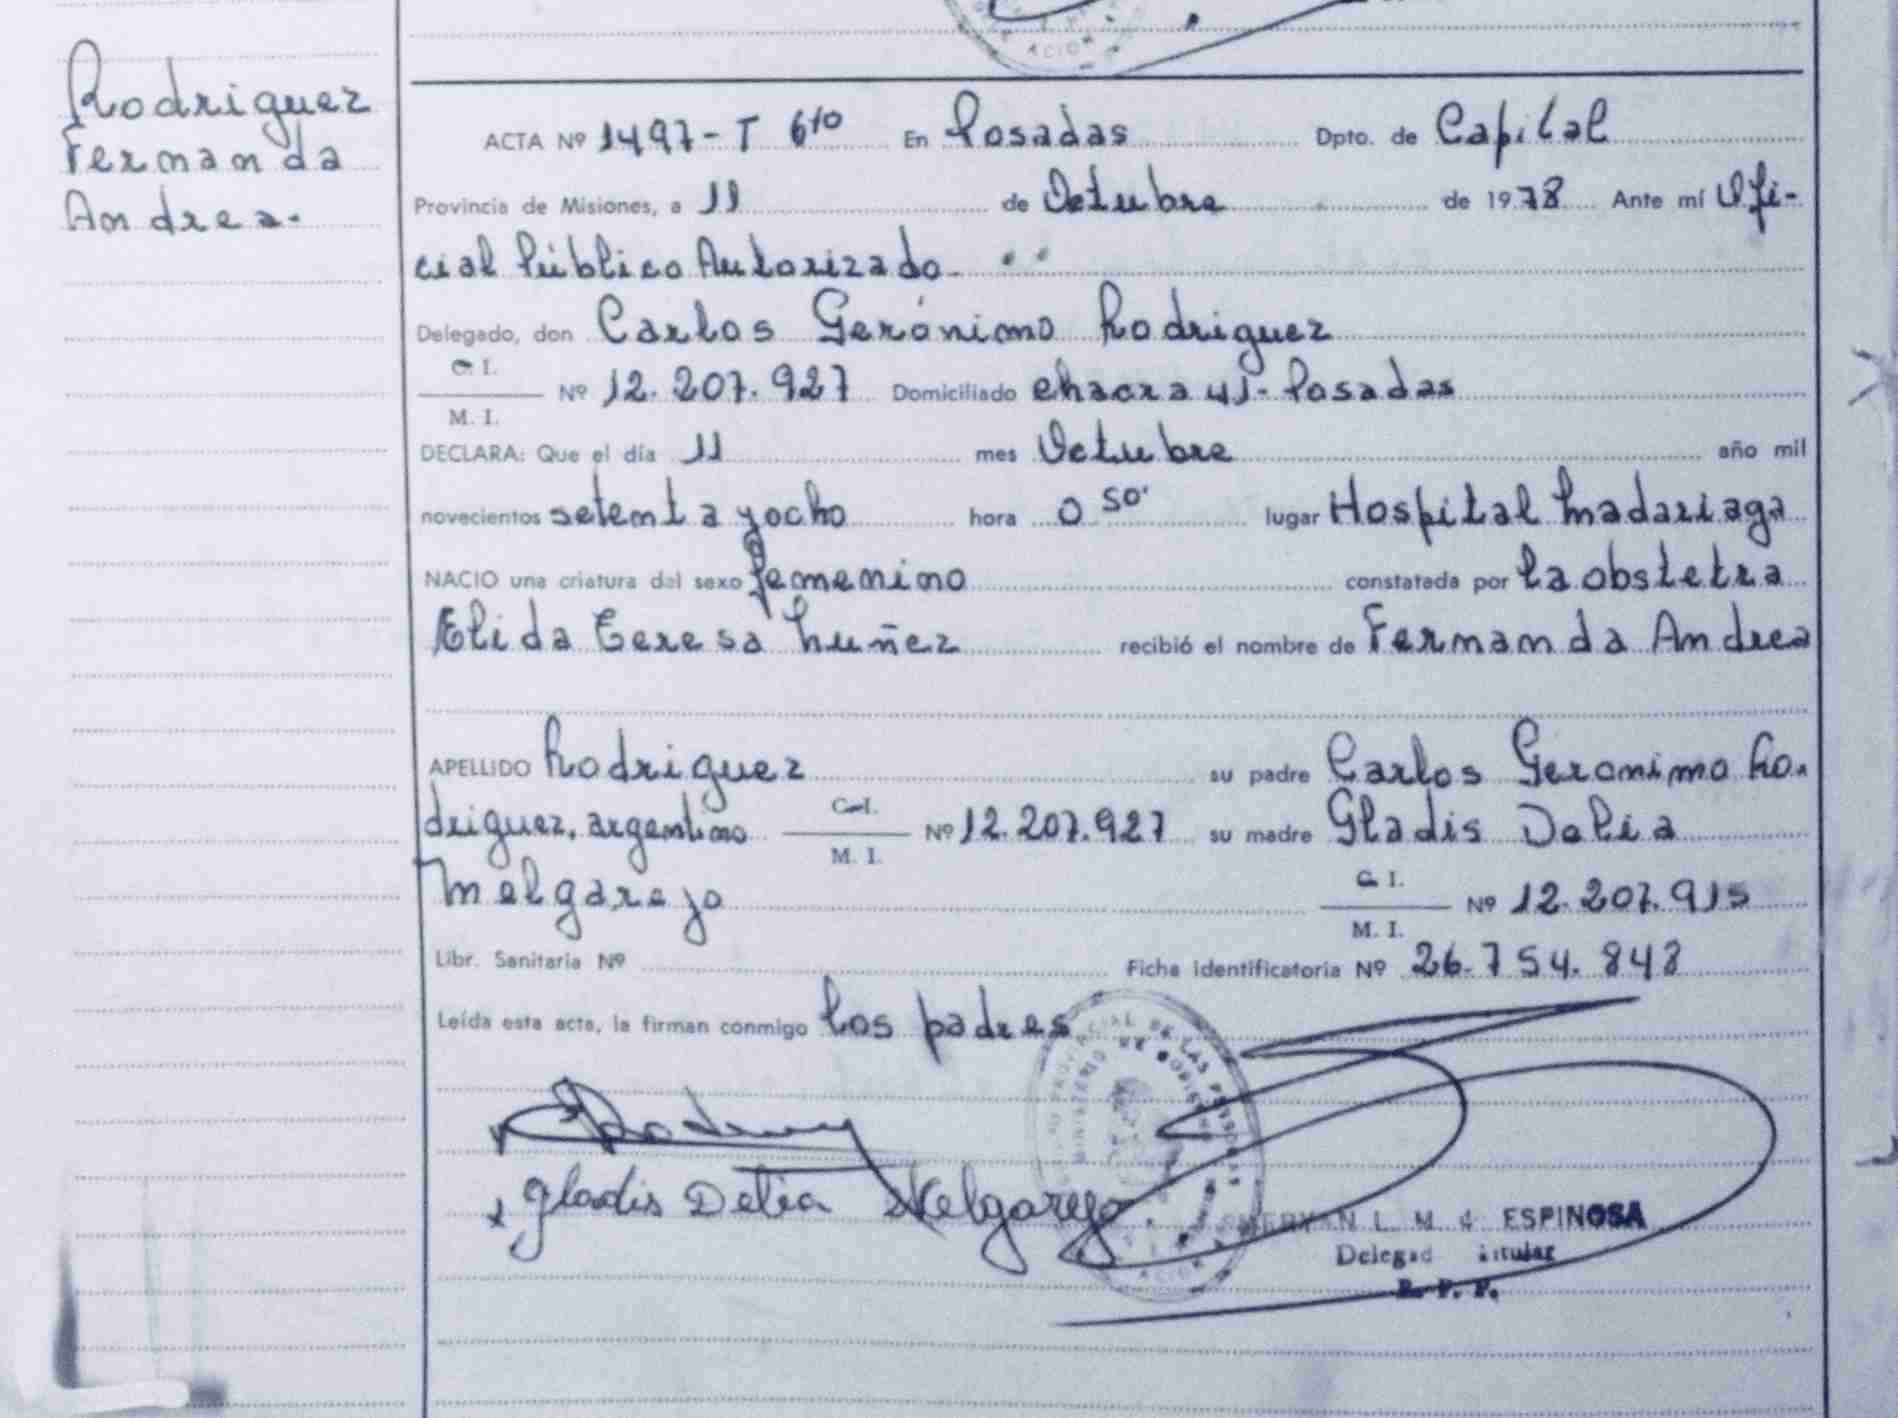 Rodriguez
Fernanda
Andrea.
ACTA Nº 1497-T 6to En Posadas Dpto. de Capital
Provincia de Misiones, a 11 de Octubre de 1978 Ante mí Ofi-
cial Público Autorizado
Delegado, don Carlos Gerónimo Rodriguez
C. I.
Nº 12.207.927 Domiciliado chacra 41- Posadas
M. I.
DECLARA: Que el día 11 mes Octubre año mil
novecientos setenta y ocho hora 0 50' lugar Hospital Madariaga
NACIO una criatura del sexo femenino constatada por la obstetra
Elida Teresa Nuñez recibió el nombre de Fernanda Andrea
APELLIDO Rodriguez su padre Carlos Geronimo Ro-
driguez, argentino C. I. Nº 12.207.927 su madre Gladis Delia
M. I.
Melgarejo C. I. Nº 12.207.915
M. I.
Libr. Sanitaria Nº Ficha identificatoria Nº 26.754.843
Leída esta acta, la firman conmigo los padres
PROVINCIAL DE LAS PERSONAS
MINISTERIO DE GOBIERNO
x Gladis Delia Melgarejo
L. M. ESPINOSA
Delegad titular
R. P. P.